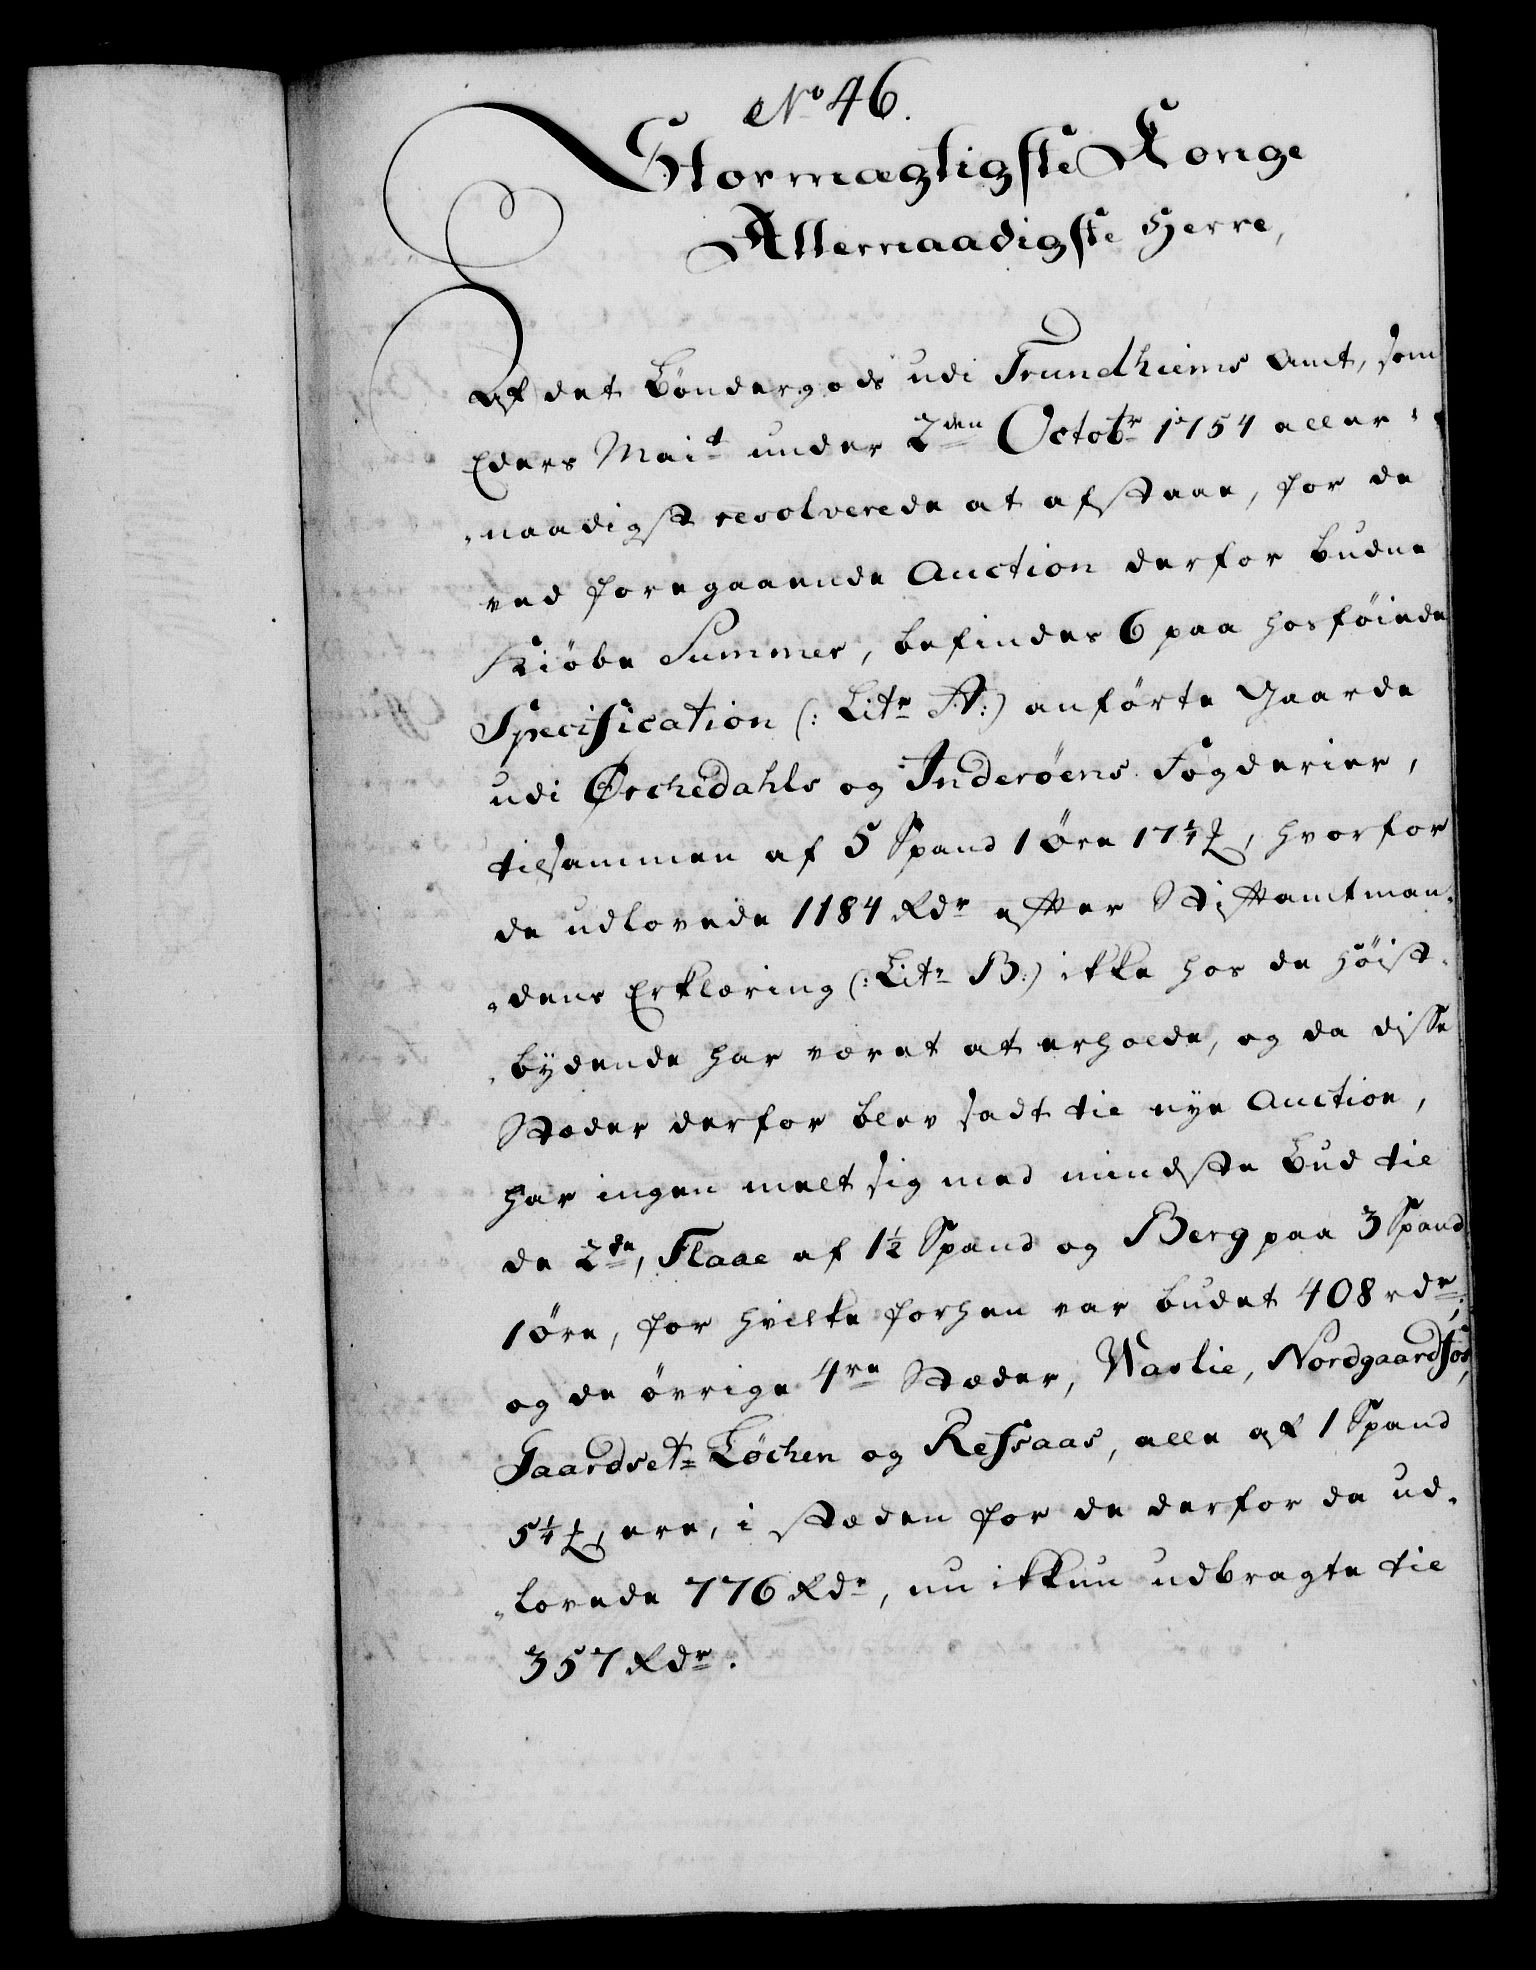 No 46.
Stormægtigste Konge
Allernaadigste Herre,
Af det Bøndergods udi Trundhiems Amt, som
Eders Mait under 2den Octobr 1754 aller-
naadigst resolverede at afstaae, for de
ved foregaaende Auction derfor budne
Kiøbe Summer, befindes 6 paa hosføiede
Specification (: Litr A:) anførte Gaarde
udi Ørchedahls og Inderøens Fogderier,
tilsammen af 5 Spand 1 Øre 17¼ ₰, hvorfor
de udlovede 1184 Rdr efter Stiftamtman-
dens Erklæring (: Litr B:) ikke hos de høist-
bydende har været at erholde, og da disse
Stæder derfor blev sadt til nye Auction,
har ingen melt sig med mindste Bud til
de 2de, Flaae af 1½ Spand og Berg paa 3 Spand
1 Øre, for hvilke forhen var budet 408 rdr;
og de øvrige 4re Stæder, Waslie, Nordgaardsos,
Gaardset-Løchen og Refsaas, alle af 1 Spand
5¼ ₰, ere, i stæden for de derfor da ud-
lovede 776 Rdr, nu ikkun udbragte til
357 Rdr.